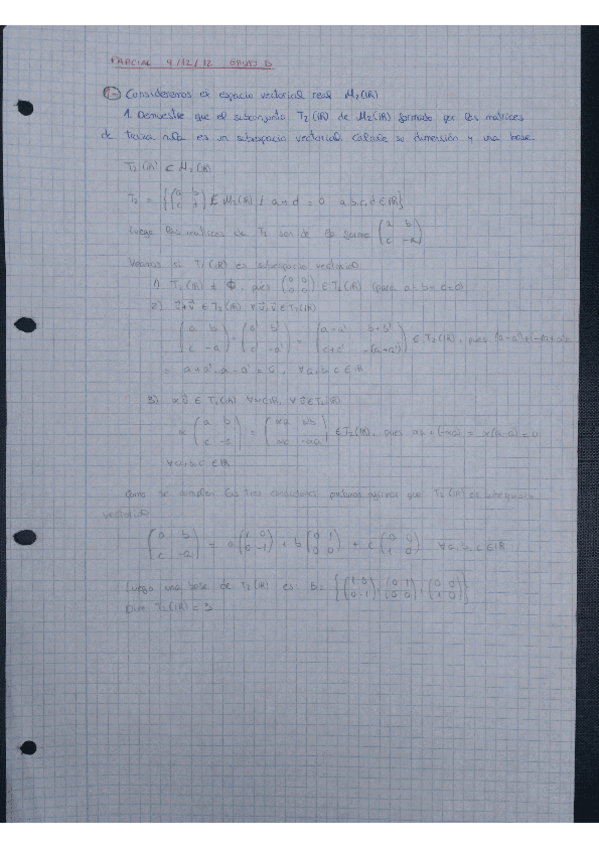 PARCIAL 4/12/12 GRUPO D
1- Consideremos el espacio vectorial real M₂(ℝ)
1. Demuestre que el subconjunto T₂(ℝ) de M₂(ℝ) formado por las matrices
de traza nula es un subespacio vectorial. Calcule su dimensión y una base
T₂(ℝ) ⊂ M₂(ℝ)
T₂ = {(a b; c d) ∈ M₂(ℝ) / a+d = 0 a,b,c,d ∈ ℝ}
Luego las matrices de T₂ son de la forma (a b; c -a)
Veamos si T₂(ℝ) es subespacio vectorial
1) T₂(ℝ) ≠ Φ, pues (0 0; 0 0) ∈ T₂(ℝ) (para a=b=c=0)
2) u⃗+v⃗ ∈ T₂(ℝ) ∀u⃗,v⃗ ∈ T₂(ℝ)
(a b; c -a) + (a' b'; c' -a') = (a+a' b+b'; c+c' -(a+a')) ∈ T₂(ℝ), pues
= a+a'-a-a' = 0, ∀a,b,c ∈ ℝ
3) αu⃗ ∈ T₂(ℝ) ∀α∈ℝ, ∀u⃗∈T₂(ℝ)
α (a b; c -a) = (αa αb; αc -αa) ∈ T₂(ℝ), pues αa+(-αa) = α(a-a) = 0
∀a,b,c ∈ ℝ
Como se cumplen las tres condiciones podemos afirmar que T₂(ℝ) es subespacio
vectorial
(a b; c -a) = a(1 0; 0 -1) + b(0 1; 0 0) + c(0 0; 1 0) ∀a,b,c ∈ ℝ
Luego una base de T₂(ℝ) es: B= {(1 0; 0 -1), (0 1; 0 0), (0 0; 1 0)}
Dim T₂(ℝ) = 3